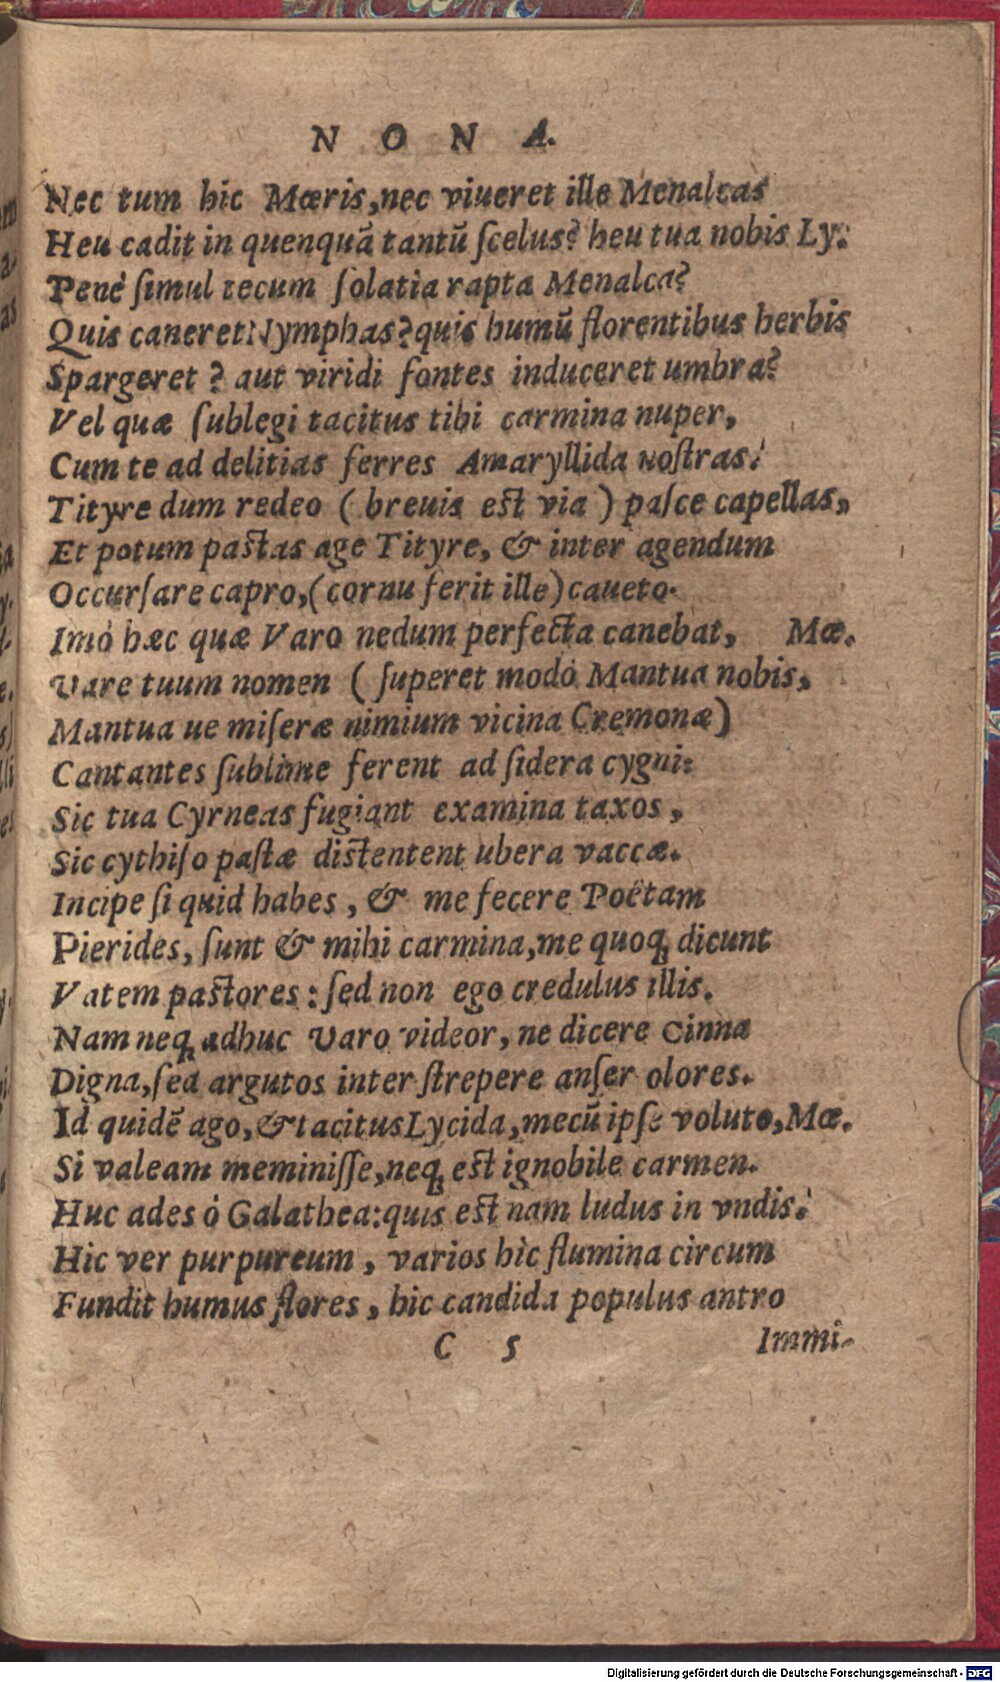 N O N A.
Nec tum hic Mœris, nec viueret ille Menalcas
Heu cadit in quenquā tantū ſcelus? heu tua nobis Ly:
Penè ſimul tecum ſolatia rapta Menalca?
Quis caneret Nymphas? quis humū florentibus herbis
Spargeret? aut viridi fontes induceret umbra?
Vel quæ ſublegi tacitus tibi carmina nuper,
Cum te ad delitias ferres Amaryllida noſtras?
Tityre dum redeo (breuis eſt via) paſce capellas,
Et potum paſtas age Tityre, & inter agendum
Occurſare capro, (cornu ferit ille) caueto.
Imò hæc quæ Varo nedum perfecta canebat, Mœ.
Vare tuum nomen (ſuperet modò Mantua nobis,
Mantua ue miſeræ nimium vicina Cremonæ)
Cantantes ſublime ferent ad ſidera cygni:
Sic tua Cyrneas fugiant examina taxos,
Sic cythiſo paſtæ diſtentent ubera vaccæ.
Incipe ſi quid habes, & me fecere Poëtam
Pierides, ſunt & mihi carmina, me quoq; dicunt
Vatem paſtores: ſed non ego credulus illis.
Nam neq; adhuc Varo videor, ne dicere Cinna
Digna, ſed argutos inter ſtrepere anſer olores.
Id quidē ago, & tacitus Lycida, mecū ipſe voluto, Mœ.
Si valeam meminiſſe, neq; eſt ignobile carmen.
Huc ades ò Galathea: quis eſt nam ludus in vndis?
Hic ver purpureum, varios hìc flumina circum
Fundit humus flores, hic candida populus antro
C 5 Immi-
Digitalisierung gefördert durch die Deutsche Forschungsgemeinschaft - DFG